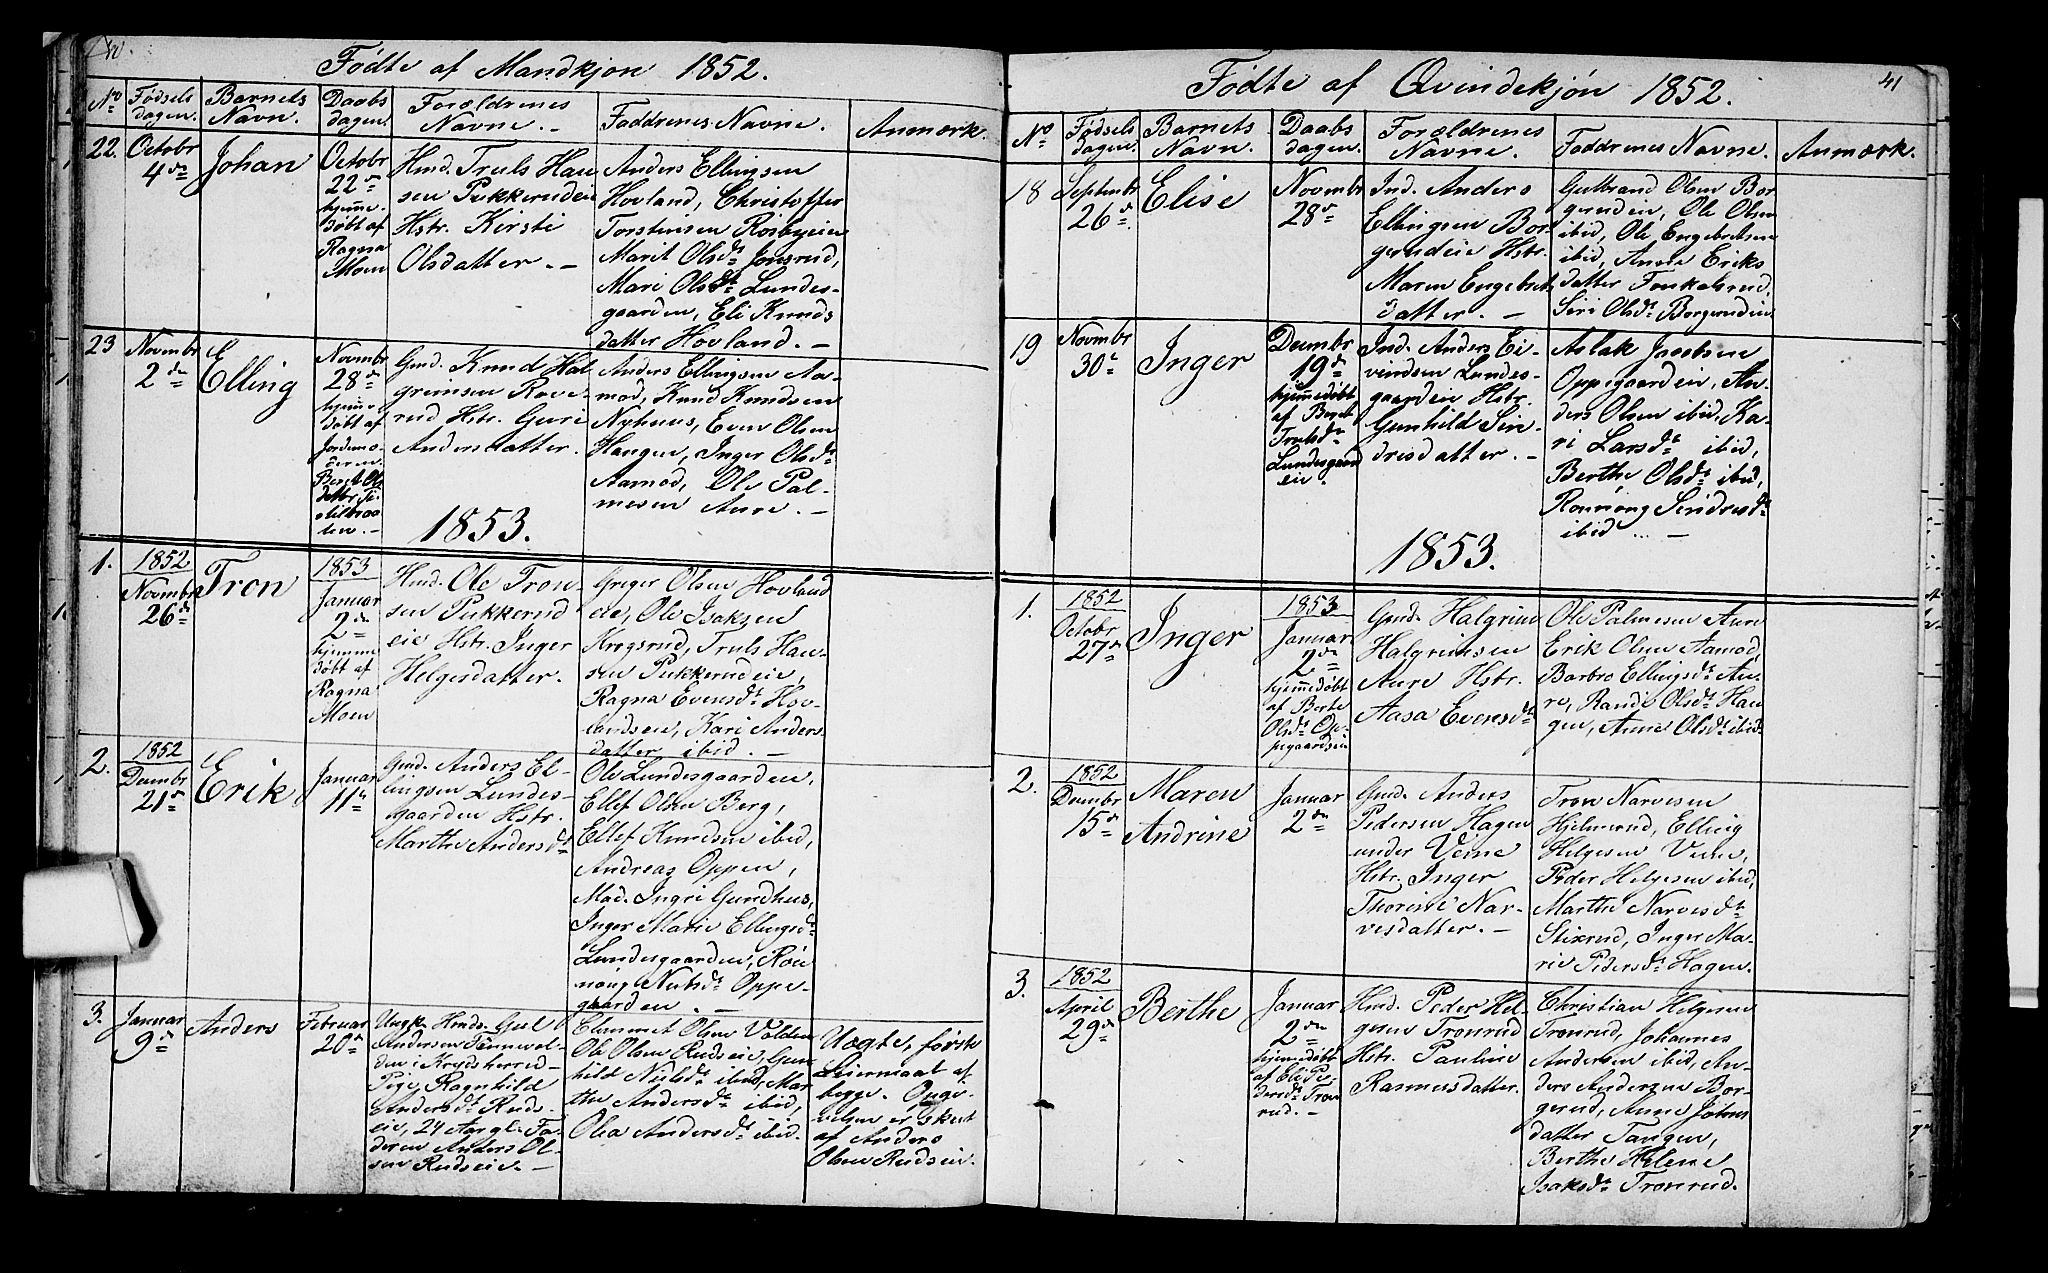 Födte af Mandkjøn 1852.
No
Fødsels dagen.
Barnets Navn.
Daabs dagen.
Forældrenes Navne. –
Faddrenes Navne.
Anmærk.
22.
Octobr
4de
Johan
Octobr
22de
hjemme-
døbt af
Ragna
Moen
Hmd. Truls Han
sen Pukkerudeie
Hstr. Kirsti
Olsdatter. –
Anders Ellingsen
Hovland, Christoffer
Torstensen Rösbyeie
Marit Olsdr Jonsrud,
Mari Olsdr Lundes-
gaarden, Eli Knuds
datter Hovland. –
23
Novmbr
2den
Elling
Novmbr
28de
hjemme
døbt af
Jordemo-
deren
Berit Ols
datter
Gmd. Knud Hal
grimsen Rove-
rud Hstr. Guri
Andersdatter.
Anders Ellingsen Aa-
mod, Knud Knudsen
Nyhuus, Even Olsen
Haugen, Inger Olsdr
Aamod, Ole Pal-
mesen Aure. –
1853.
1.
1852
Novmbr
26de
Tron
1853
Januar
2den
hjemme
døbt af
Ragna
Moen
Hmd. Ole Tron-
sen Pukkerud
eie Hstr. Inger
Helgesdatter.
Greger Olsen Hovland
eie, Ole Isaksen
Krogsrud, Truls Han-
sen Pukkerudeie,
Ragna Evensdr Hov-
landseie, Kari Anders
datter ibid. –
2.
1852
Decmbr
21de
Erik
Januar
11te
Gmd. Anders El-
lingsen Lundes-
gaarden Hstr.
Marthe Andersdr
Ole Lundesgaarden,
Ellef Olsen Berg,
Ellef Knudsen ibid,
Andreas Oppen,
Mad. Ingri Gundhus,
Inger Marie Ellingsdr
Lundesgaarden, Rön
nöug Nielsdr Oppe-
gaarden. –
3.
Januar
9de
Anders
Februar
20de
Ungk. Hmds. Gul
Andersen Tennevol-
den i Krydsherred–
Pige Ragnhild
Andersdr Ruds-
eie, 24 Aar gl. Fa-
deren Anders Ol-
sen Rudseie. –
Elammet Olsen Volden
Ole Olsen Rudseie, Gun
hild Nielsdr ibid, Mar
the Andersdr ibid,
Olea Andersdr ibid.
Uægte, første
Leiermaal af
begge. Opgi-
velsen er skeet
af Anders
Olsen Rudseie.
41
Födte af Qvindekjön 1852.
No
Fødsels dagen.
Barnets Navn.
Daabs dagen.
Forældrenes Navne.
Faddrenes Navne.
Anmærk.
18
Septembr
26de
Elise
Novmbr
28de
Ind. Anders
Ellingsen Bor
gerudeie Hstr.
Maren Engebrets
datter. –
Gulbrand Olsen Bor
gerudeie, Ole Olsen
ibid, Ole Engebretsen
ibid, Anne Eriks
datter Fonkalsrud,
Siri Olsdr Borgerudeie.
19
Novmbr
30te
Inger
Decmbr
19de
hjemmedøbt
af Berit
Trulsdr
Lundesgaard
eie.
Ind. Anders Ei-
vindsen Lundes-
gaardeie Hstr.
Gunhild Sin-
dresdatter. –
Aslak Jacobsen
Oppegaardeie, An-
ders Olsen ibid, Ka-
ri Larsdr ibid,
Berthe Olsdr ibid,
Rönnöug Sindresdr
ibid ... –
1853.
1.
1852
Octobr
27de
Inger
1853
Januar
2den
hjemmedøbt
af Berte
Olsdr Op-
pegaardseie
Gmd. Halgrim
Halgrimsen
Aure Hstr.
Aasa Evensdr
Ole Palmesen Aure
Erik Olsen Aamod,
Barbro Ellingsdr Au-
re, Randi Olsdr Hau
gen, Anne Olsdr ibid.
2.
1852
Decmbr
15de
Maren
Andrine
Januar
2den
Gmd. Anders
Pedersen Hagen
under Veine
Hstr. Inger
Thorine Nar-
vesdatter. –
Tron Narvesen
Hjelmerud, Elling
Helgesen Veine,
Peder Helgesen ibid,
Marthe Narvesdr
Stixrud, Inger Ma-
rie Pedersdr Hagen.
3.
1852
April
29de
Berthe
Januar
2den
hjemmedøbt
af Eli Pe-
dersdr Tron
rud. –
Hmd. Peder Hel-
gesen Tronrud
Hstr. Pauline
Rasmusdatter.
Christian Helgesen
Tronrud, Johannes
Andersen ibid, An-
ders Andersen Bor-
gerud, Anne Johns
datter Tangen,
Berthe Helene
Isaksdr Tronrud.